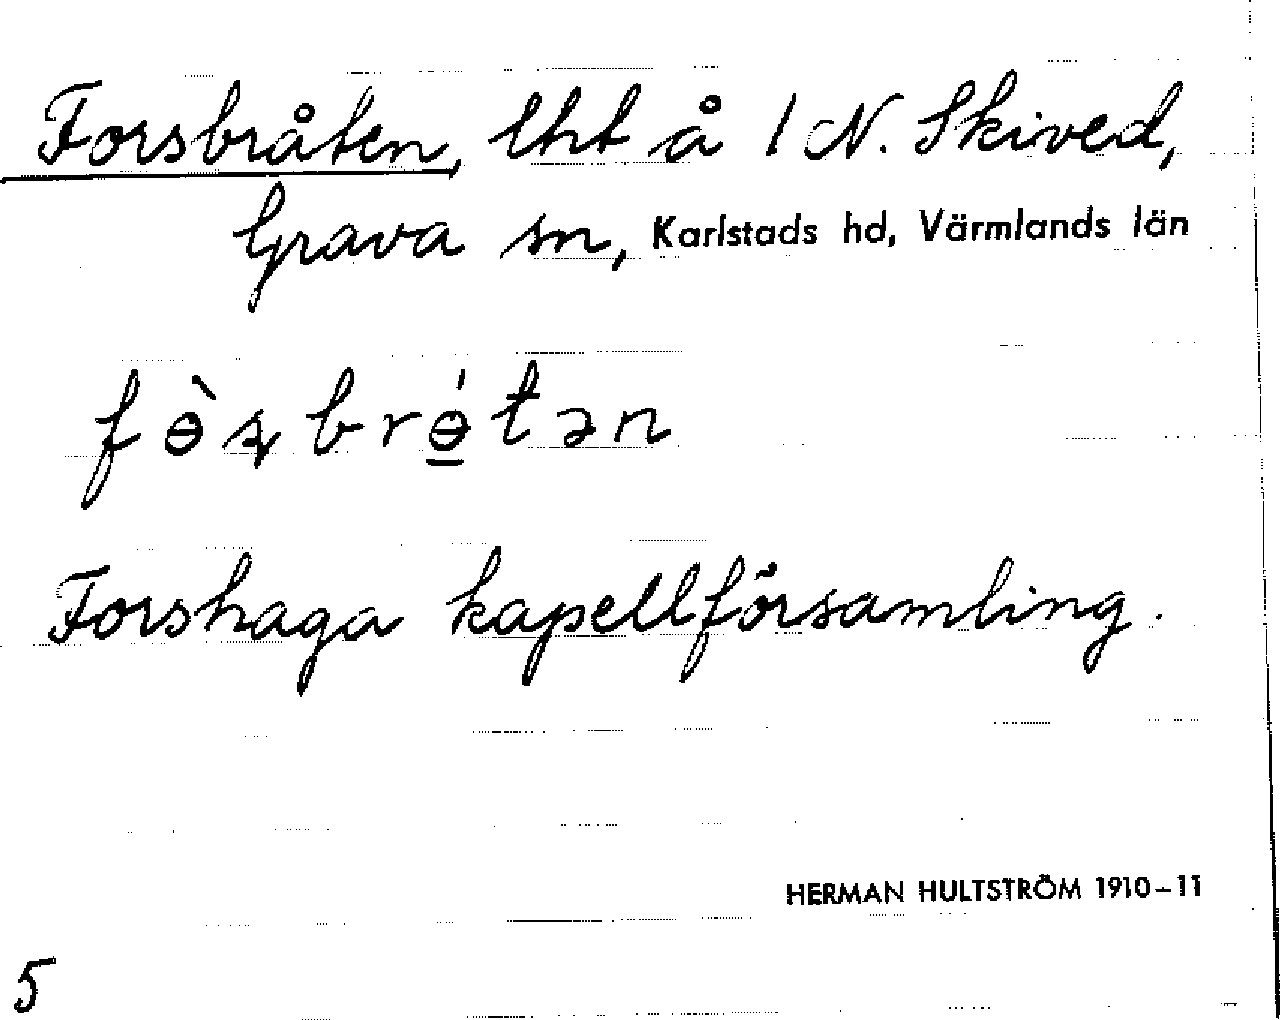 Forsbråten, lht å 1 N. Skived,
Grava sn, Karlstads hd, Värmlands län
fɵ̀ʂbrɵ̲́tən
Forshaga kapellförsamling.
HERMAN HULTSTRÖM 1910-11
5